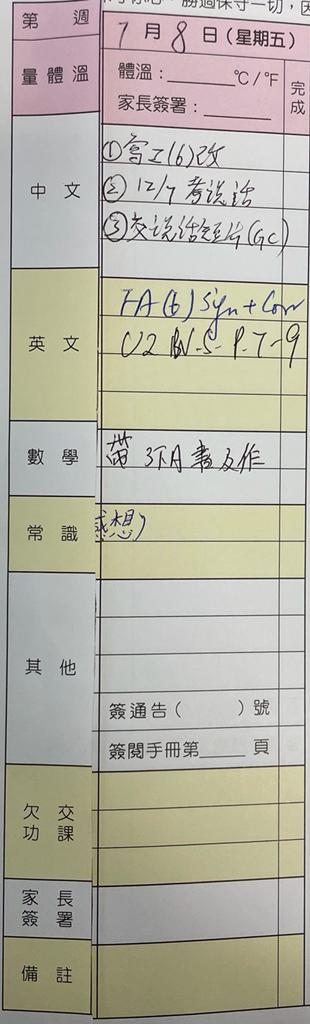 第 週
7 月 8 日(星期五)
量體溫
體溫:______℃/℉
家長簽署:______
完成
中文
①寫工(6)改
② 12/7 考說話
③交說話短片(GC)
英文
FA(6) Sign + Corr
U2 P.7-9
數學
帶 3下A 書及作
常識
感想)
其他
簽通告( )號
簽閱手冊第____頁
欠交功課
家長簽署
備註